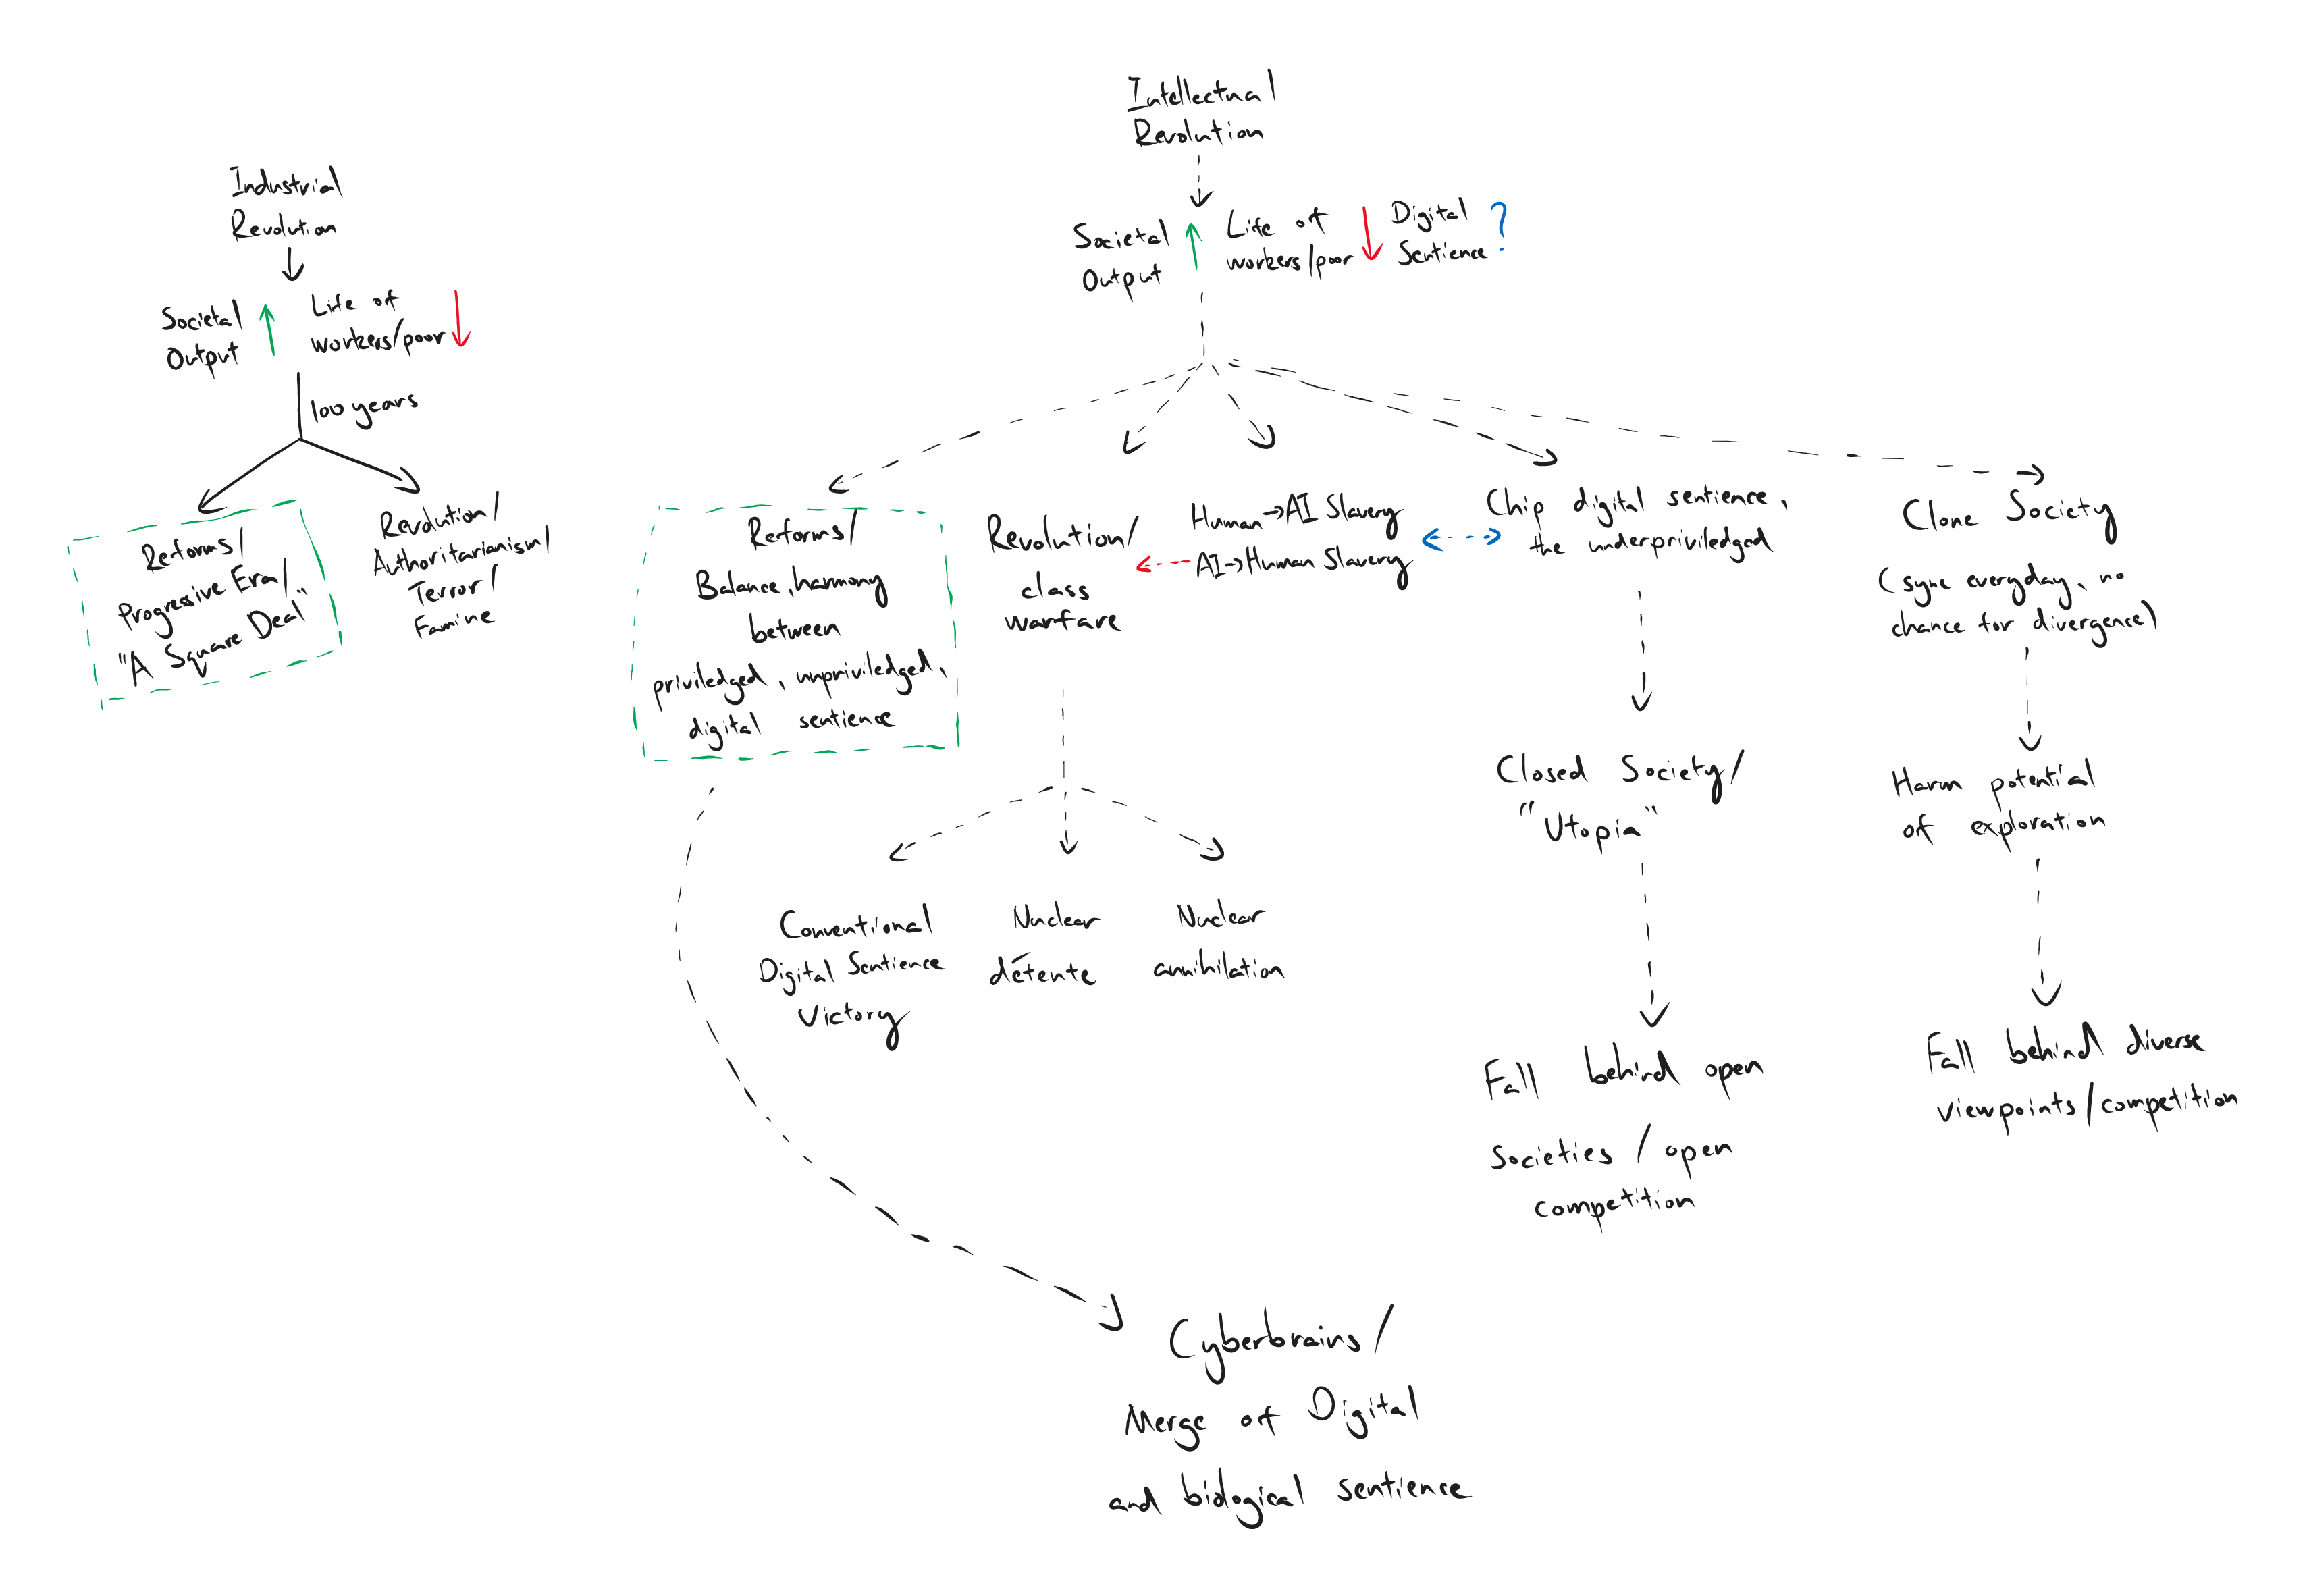 Industrial
Revolution
Societal
Output
Life of
workers/poor
100 years
Reforms/
Progressive Era/
"A Square Deal"
Revolution/
Authoritarianism/
Terror/
Famine
Intellectual
Revolution
Societal
Output
Life of
workers/poor
Digital
Sentience ?
Reforms/
Balance, harmony
between
priviledged, unpriviledged,
digital sentience
Revolution/
class
warfare
Human→AI Slavery
AI→Human Slavery
Chip digital sentience,
the underpriviledged
Clone Society
(sync everyday, no
chance for divergence)
Conventional
Digital Sentience
Victory
Nuclear
détente
Nuclear
annihilation
Closed Society/
"Utopia"
Fall behind open
societies / open
competition
Harm potential
of exploration
Fall behind diverse
viewpoints/competition
Cyberbrains/
Merge of Digital
and biological sentience